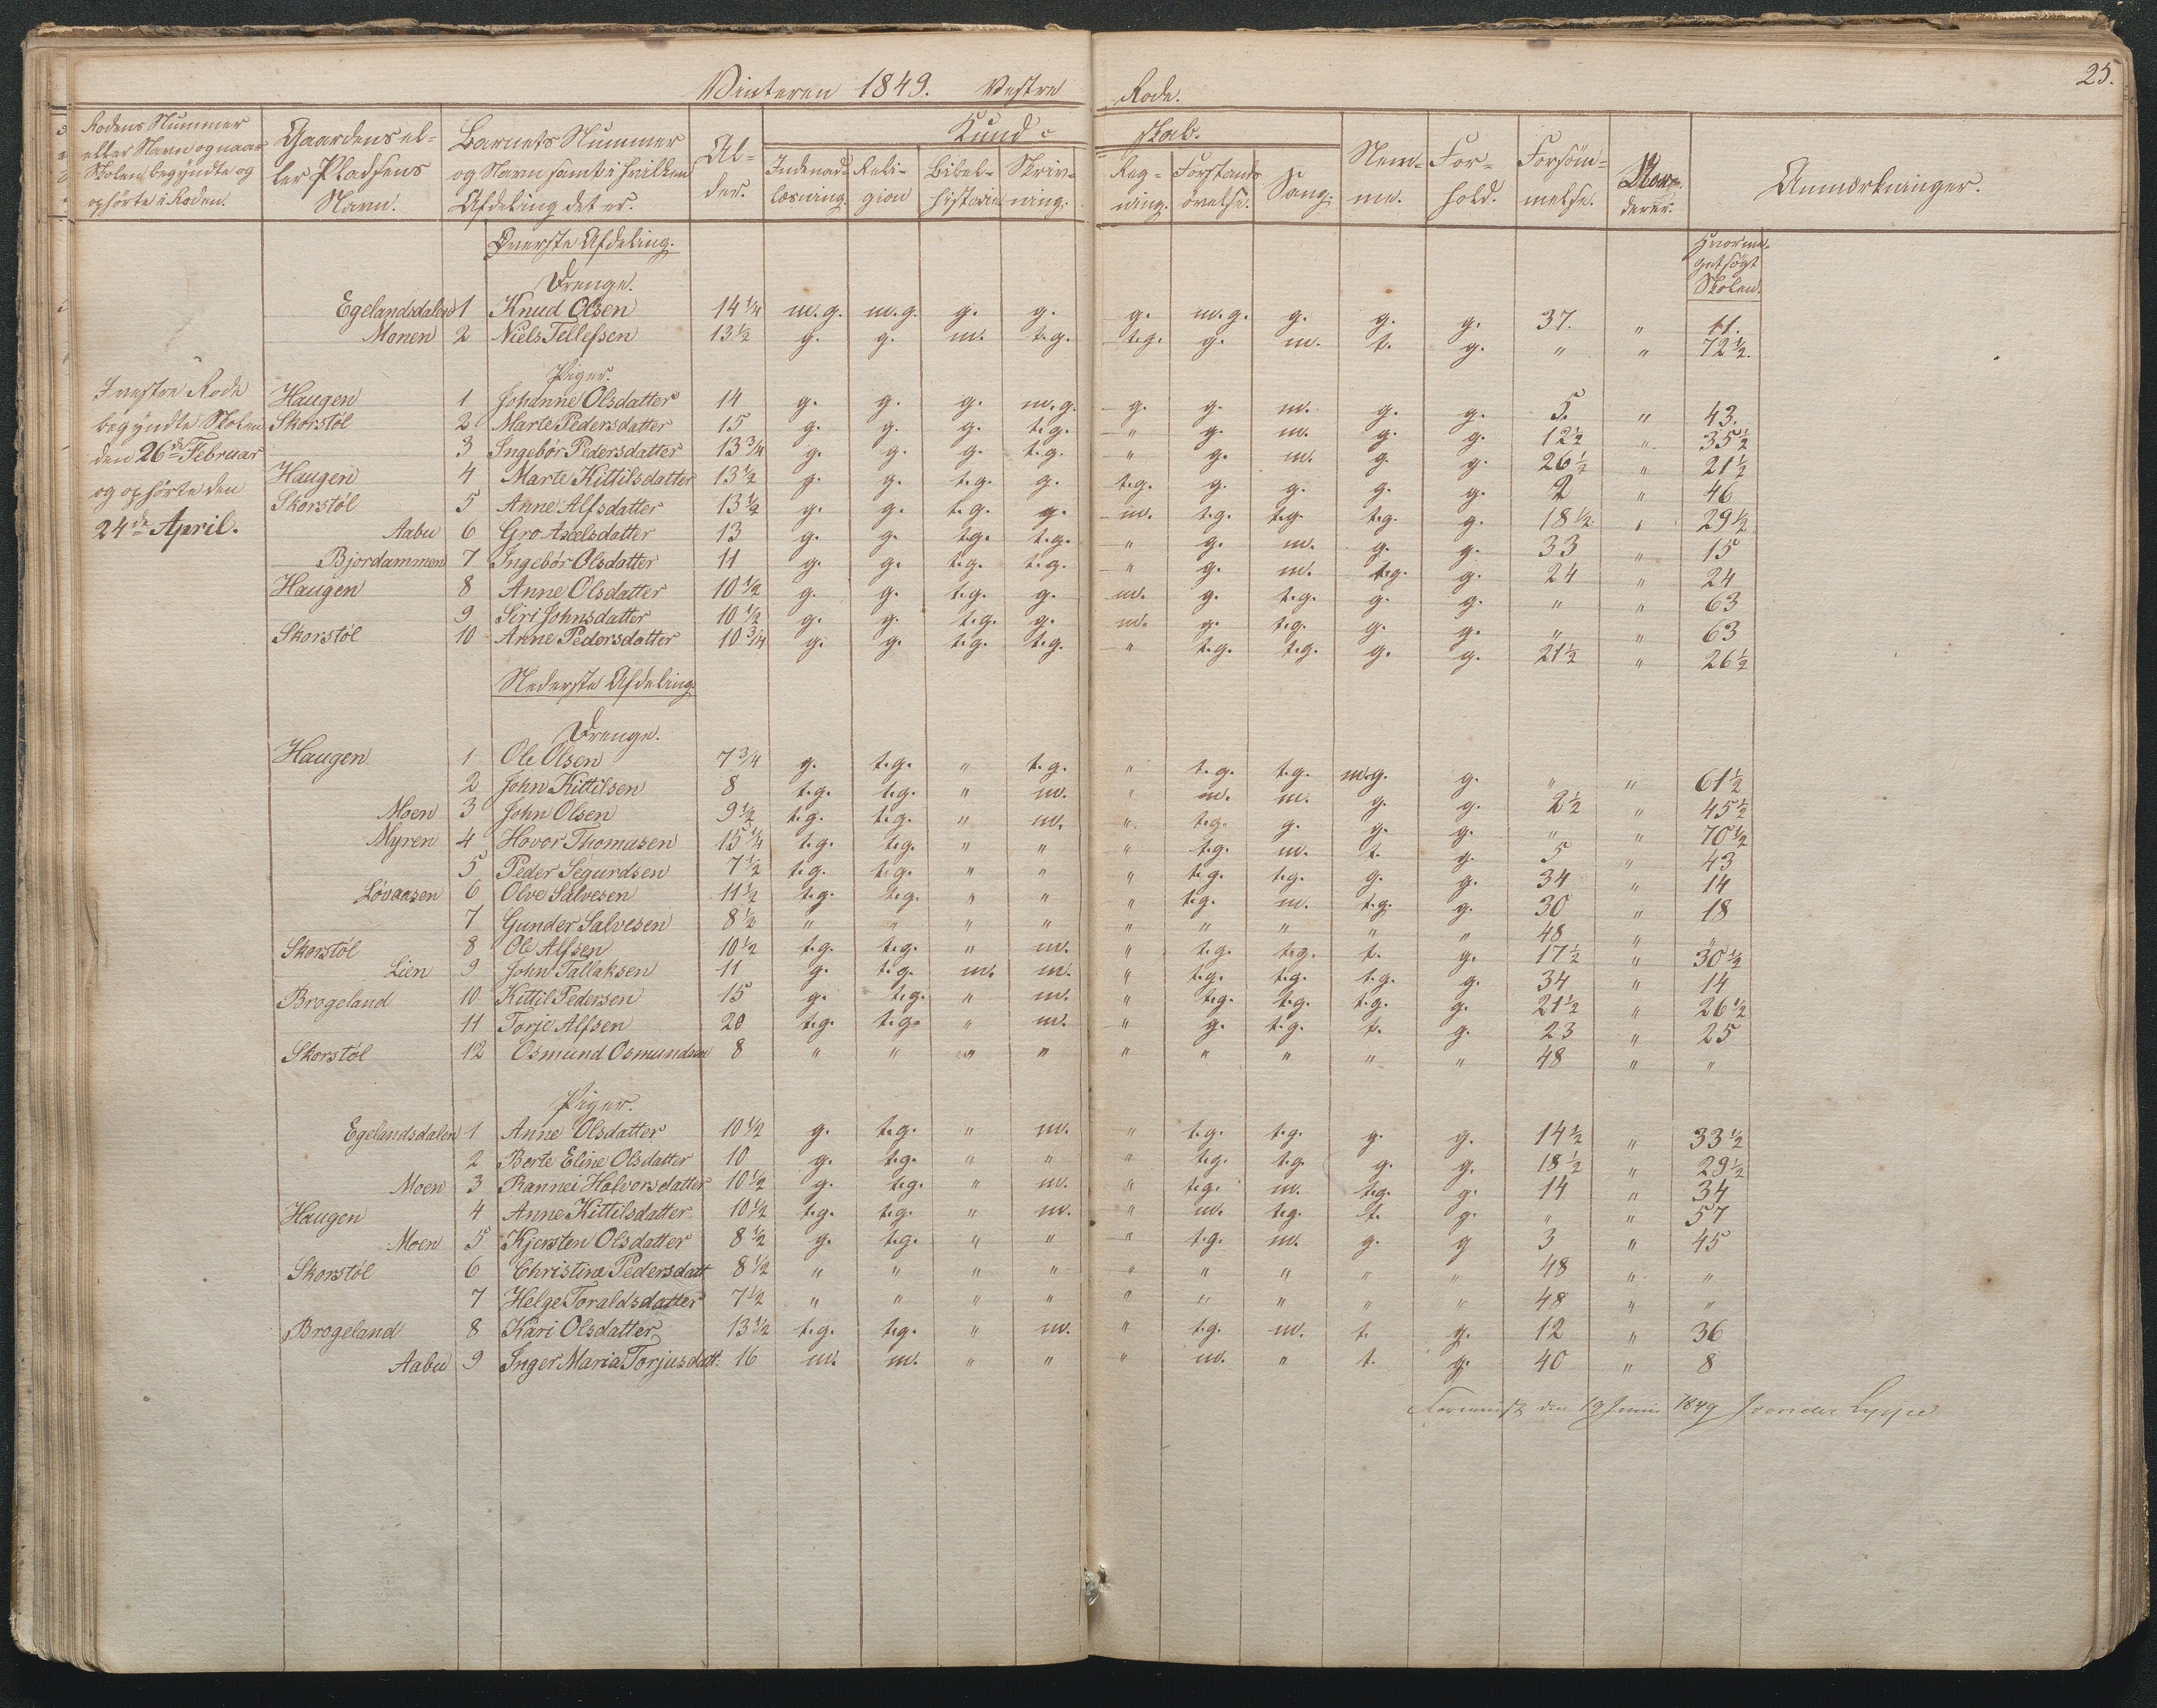 25.
Vinteren 1849. Vestre Rode.
Rodens Nummer eller Navn og naar Skolen begyndte og ophörte i Roden. | Gaardens eller Pladsens Navn. | Barnets Nummer og Navn samt i hvilken Afdeling det er. | Alder. | Kundskab. | Nemme. | Forhold. | Forsömmelse. | Anmærkninger.
Indenadlæsning. | Religion | Bibelhistorie | Skrivning. | Regning. | Forstandsövelse. | Sang.
Överste Afdeling.
Hvormeget sögt Skolen.
Drenge.
Egelandsdalen 1 Knud Olsen 14 1/4 m.g. m.g. g. g. g. m.g. g. g. g. 37. " 11.
Monen 2 Niels Tellefsen 13 1/2 g. g. m. t.g. t.g. g. m. t. g. " " 72 1/2.
Piger.
I vestre Rode begyndte Skolen den 26de Februar og ophörte den 24de April.
Haugen 1 Johanne Olsdatter 14 g. g. g. m.g. g. g. m. g. g. 5. " 43.
Skorstöl 2 Marte Pedersdatter 15 g. g. g. t.g. " g. m. g. g. 12 1/2 " 35 1/2
3 Ingebör Pedersdatter 13 3/4 g. g. g. t.g. " g. m. g. g. 26 1/2 " 21 1/2
Haugen 4 Marte Kittilsdatter 13 1/2 g. g. t.g. g. t.g. g. g. g. g. 2 " 46
Skorstöl 5 Anne Alfsdatter 13 1/2 g. g. t.g. g. m. t.g. t.g. t.g. g. 18 1/2 " 29 1/2
Aabu 6 Gro Axelsdatter 13 g. g. t.g. t.g. " g. m. g. g. 33 " 15
Bjordammen 7 Ingebör Olsdatter 11 g. g. t.g. t.g. " g. m. t.g. g. 24 " 24
Haugen 8 Anne Olsdatter 10 1/2 g. g. t.g. g. m. g. t.g. g. g. " " 63
9 Siri Johnsdatter 10 1/2 g. g. t.g. g. m. g. t.g. g. g. " " 63
Skorstöl 10 Anne Pedersdatter 10 3/4 g. g. t.g. t.g. " t.g. t.g. g. g. 21 1/2 " 26 1/2
Nederste Afdeling.
Drenge.
Haugen 1 Ole Olsen 7 3/4 g. t.g. " t.g. " t.g. t.g. m.g. g. " " 61 1/2
2 John Kittilsen 8 t.g. t.g. " m. " m. m. g. g. 2 1/2 " 45 1/2
Moen 3 John Olsen 9 1/2 t.g. t.g. " m. " t.g. g. g. g. " " 70 1/2
Myren 4 Hovor Thomasen 15 1/4 t.g. t.g. " " " t.g. m. t. g. 5 " 43
5 Peder Segurdsen 7 1/2 t.g. t.g. " " " t.g. t.g. g. g. 34 " 14
Lövaasen 6 Olve Salvesen 11 1/2 t.g. t.g. " " " t.g. m. t.g. g. 30 " 18
7 Gunder Salvesen 8 1/2 " " " " " " " " " 48 " "
Skorstöl 8 Ole Alfsen 10 1/2 t.g. t.g. " m. " t.g. t.g. t. g. 17 1/2 " 30 1/2
Lien 9 John Tallaksen 11 g. t.g. m. m. " t.g. t.g. t.g. g. 34 " 14
Brogeland 10 Kittil Pedersen 15 g. t.g. " m. " t.g. t.g. t.g. g. 21 1/2 " 26 1/2
11 Torje Alfsen 20 t.g. t.g. " m. " g. t.g. t. g. 23 " 25
Skorstöl 12 Osmund Osmundsen 8 " " " " " " " " " 48 " "
Piger.
Egelandsdalen 1 Anne Olsdatter 10 1/2 g. t.g. " m. " t.g. t.g. g. g. 14 1/2 " 33 1/2
2 Berte Eline Olsdatter 10 g. t.g. " " " t.g. t.g. g. g. 18 1/2 " 29 1/2
Moen 3 Rannei Halvorsdatter 10 1/2 g. t.g. " m. " t.g. m. t.g. g. 14 " 34
Haugen 4 Anne Kittilsdatter 10 1/2 t.g. t.g. " m. " m. t.g. t. g. " " 57
Moen 5 Kjersten Olsdatter 8 1/2 g. t.g. " " " t.g. m. g. g 3 " 45
Skorstöl 6 Christine Pedersdatt 8 1/2 " " " " " " " " " 48 " "
7 Helge Toraldsdatter 7 1/2 " " " " " " " " " 48 " "
Brogeland 8 Kari Olsdatter 13 1/2 t.g. t.g. " m. " t.g. m. t. g. 12 " 36
Aabu 9 Inger Maria Torjusdatt. 16 m. m. " " " m. " t. g. 40 " 8
Foreviist den 19 Junii 1849